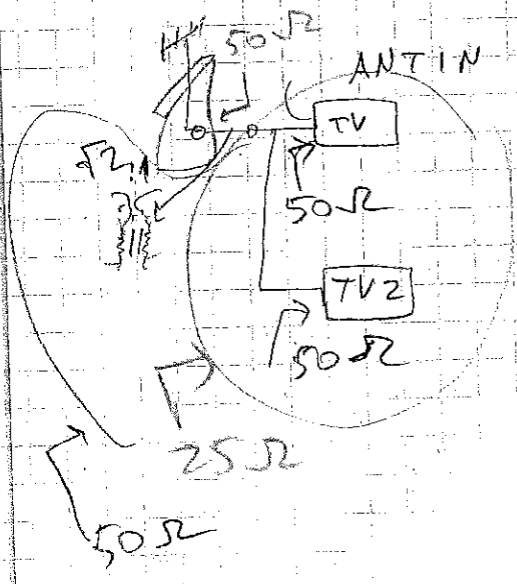 50Ω
ANT IN
TV
√2:1
50Ω
TV2
50Ω
25Ω
50Ω